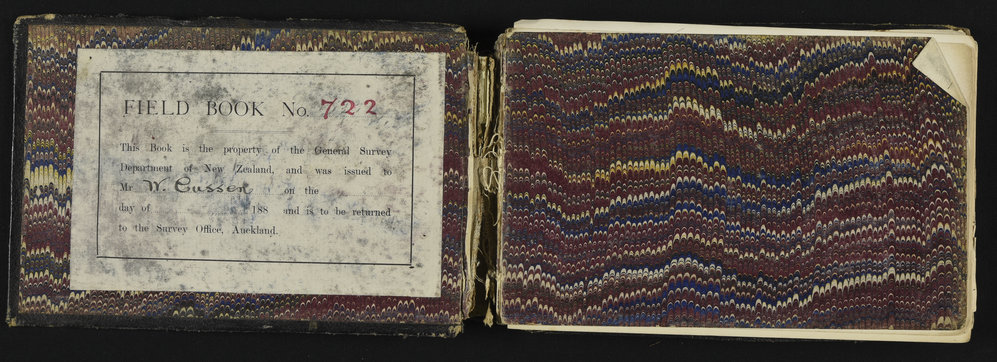 FIELD BOOK No. 722
This Book is the property of the General Survey
Department of New Zealand, and was issued to
Mr W. Cussen on the
day of 188 and is to be returned
to the Survey Office, Auckland.